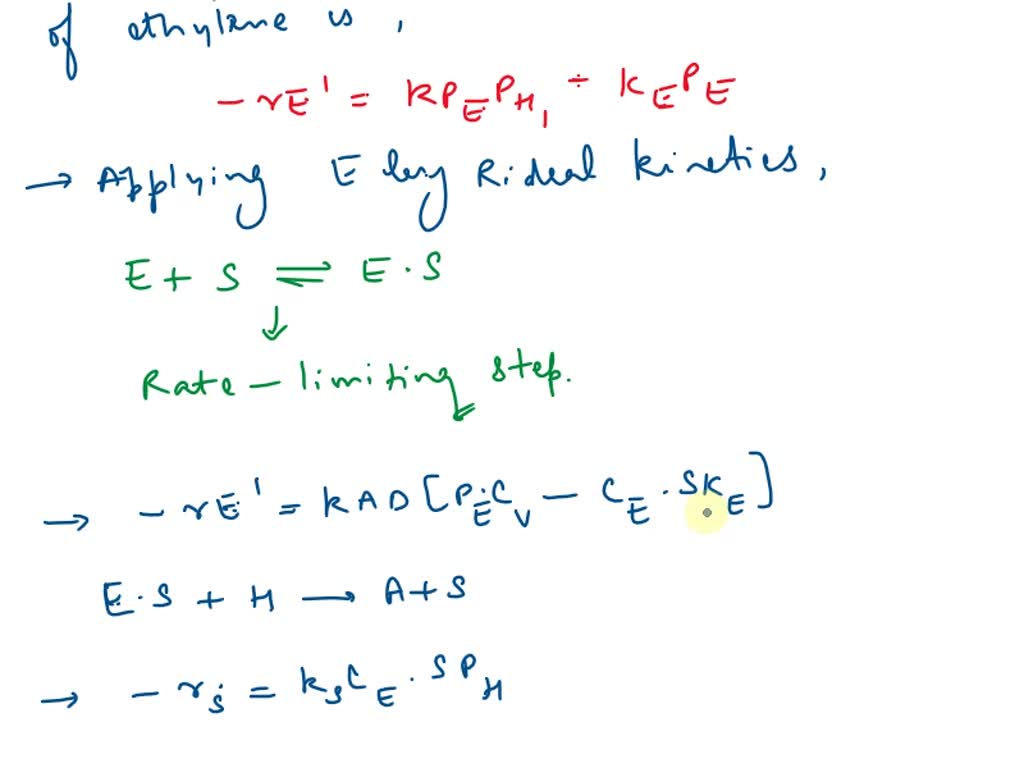 of ethylene is,
- rE' = kP_E P_H, ÷ K_E P_E
→ Applying Eley Rideal kinetics,
E + S ⇌ E · S
↓
Rate - limiting step.
→ - rE' = kAD [P_E · C_V - C_E · SK_E]
E·S + H → A + S
→ - r_s = k_s C_E · S P_H